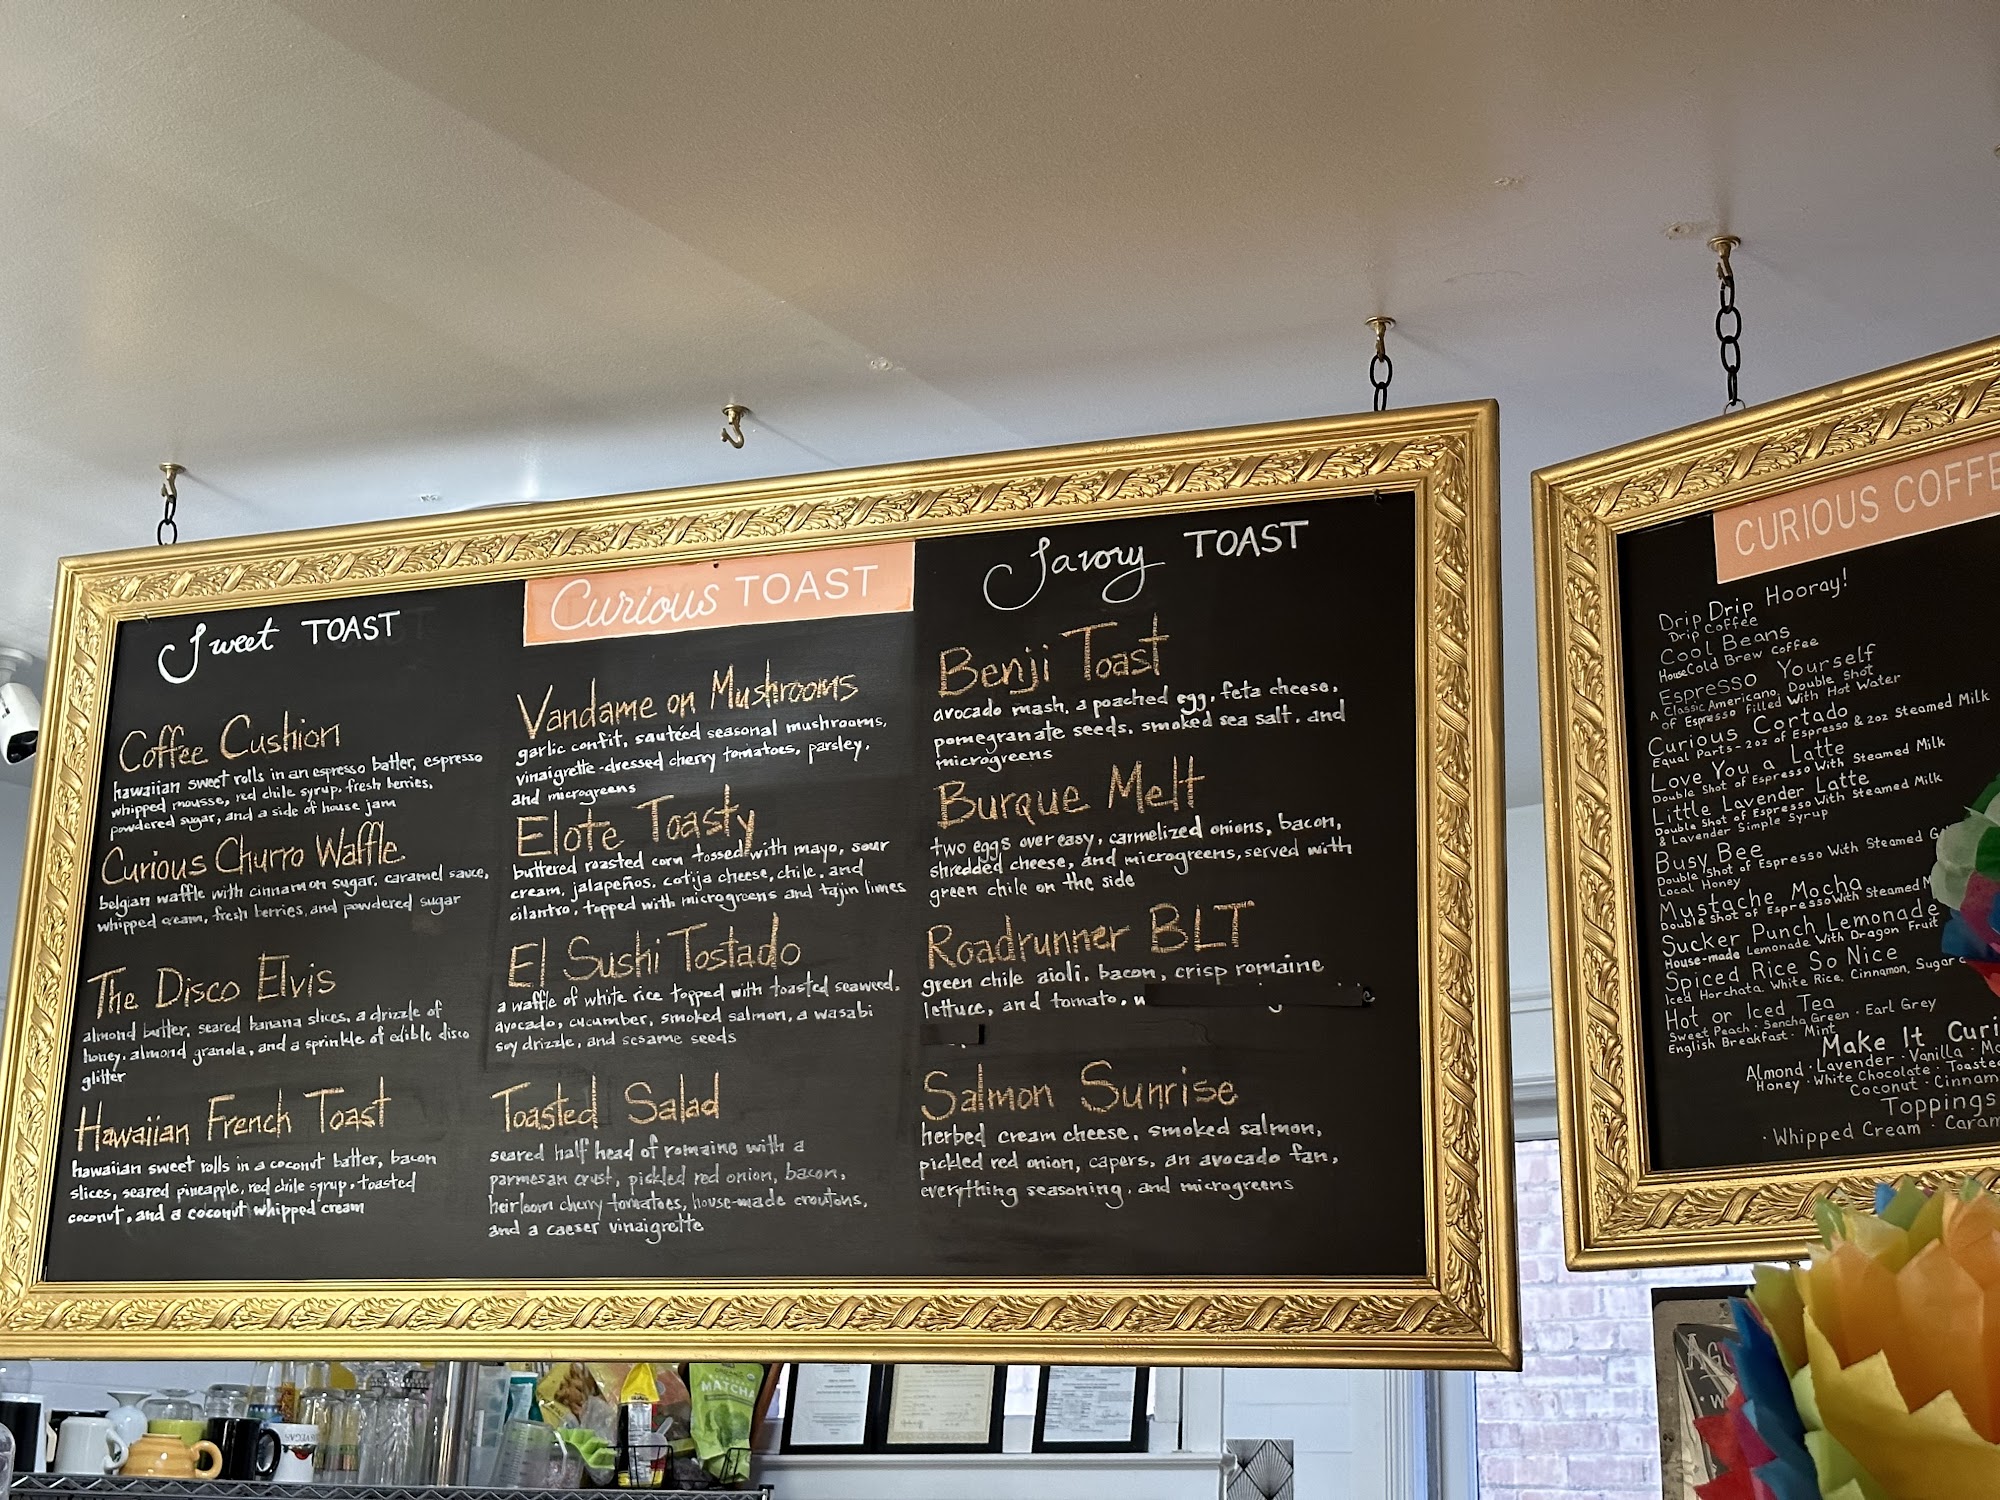 Sweet TOAST
Coffee Cushion
hawaiian sweet rolls in an espresso batter, espresso
whipped mousse, red chile syrup, fresh berries,
powdered sugar, and a side of house jam
Curious Churro Waffle
belgian waffle with cinnamon sugar, caramel sauce,
whipped cream, fresh berries, and powdered sugar
The Disco Elvis
almond butter, seared banana slices, a drizzle of
honey, almond granola, and a sprinkle of edible disco
glitter
Hawaiian French Toast
hawaiian sweet rolls in a coconut batter, bacon
slices, seared pineapple, red chile syrup, toasted
coconut, and a coconut whipped cream
Curious TOAST
Vandame on Mushrooms
garlic confit, sautéed seasonal mushrooms,
vinaigrette-dressed cherry tomatoes, parsley,
and microgreens
Elote Toasty
buttered roasted corn tossed with mayo, sour
cream, jalapeños, cotija cheese, chile, and
cilantro, topped with microgreens and tajin limes
El Sushi Tostado
a waffle of white rice topped with toasted seaweed,
avocado, cucumber, smoked salmon, a wasabi
soy drizzle, and sesame seeds
Toasted Salad
seared half head of romaine with a
parmesan crust, pickled red onion, bacon,
heirloom cherry tomatoes, house-made croutons,
and a caeser vinaigrette
Savory TOAST
Benji Toast
avocado mash, a poached egg, feta cheese,
pomegranate seeds, smoked sea salt, and
microgreens
Burque Melt
two eggs over easy, carmelized onions, bacon,
shredded cheese, and microgreens, served with
green chile on the side
Roadrunner BLT
green chile aioli, bacon, crisp romaine
lettuce, and tomato,
Salmon Sunrise
herbed cream cheese, smoked salmon,
pickled red onion, capers, an avocado fan,
everything seasoning, and microgreens
CURIOUS COFFE
Drip Drip Hooray!
Drip Coffee
Cool Beans
HouseCold Brew Coffee
Espresso Yourself
A Classic Americano, Double Shot
of Espresso Filled With Hot Water
Curious Cortado
Equal Parts - 2oz of Espresso & 2oz Steamed Milk
Love You a Latte
Double Shot of Espresso With Steamed Milk
Little Lavender Latte
Double Shot of Espresso With Steamed Milk
& Lavender Simple Syrup
Busy Bee
Double Shot of Espresso With Steamed
Local Honey
Mustache Mocha
Double Shot of Espresso With Steamed M
Sucker Punch Lemonade
House-made Lemonade With Dragon Fruit
Spiced Rice So Nice
Iced Horchata, White Rice, Cinnamon, Sugar
Hot or Iced Tea
Sweet Peach · Sencha Green · Earl Grey
English Breakfast · Mint
Make It Curi
Almond · Lavender · Vanilla · Mo
Honey · White Chocolate · Toasted
Coconut · Cinnam
Toppings
· Whipped Cream · Caram
MATCHA